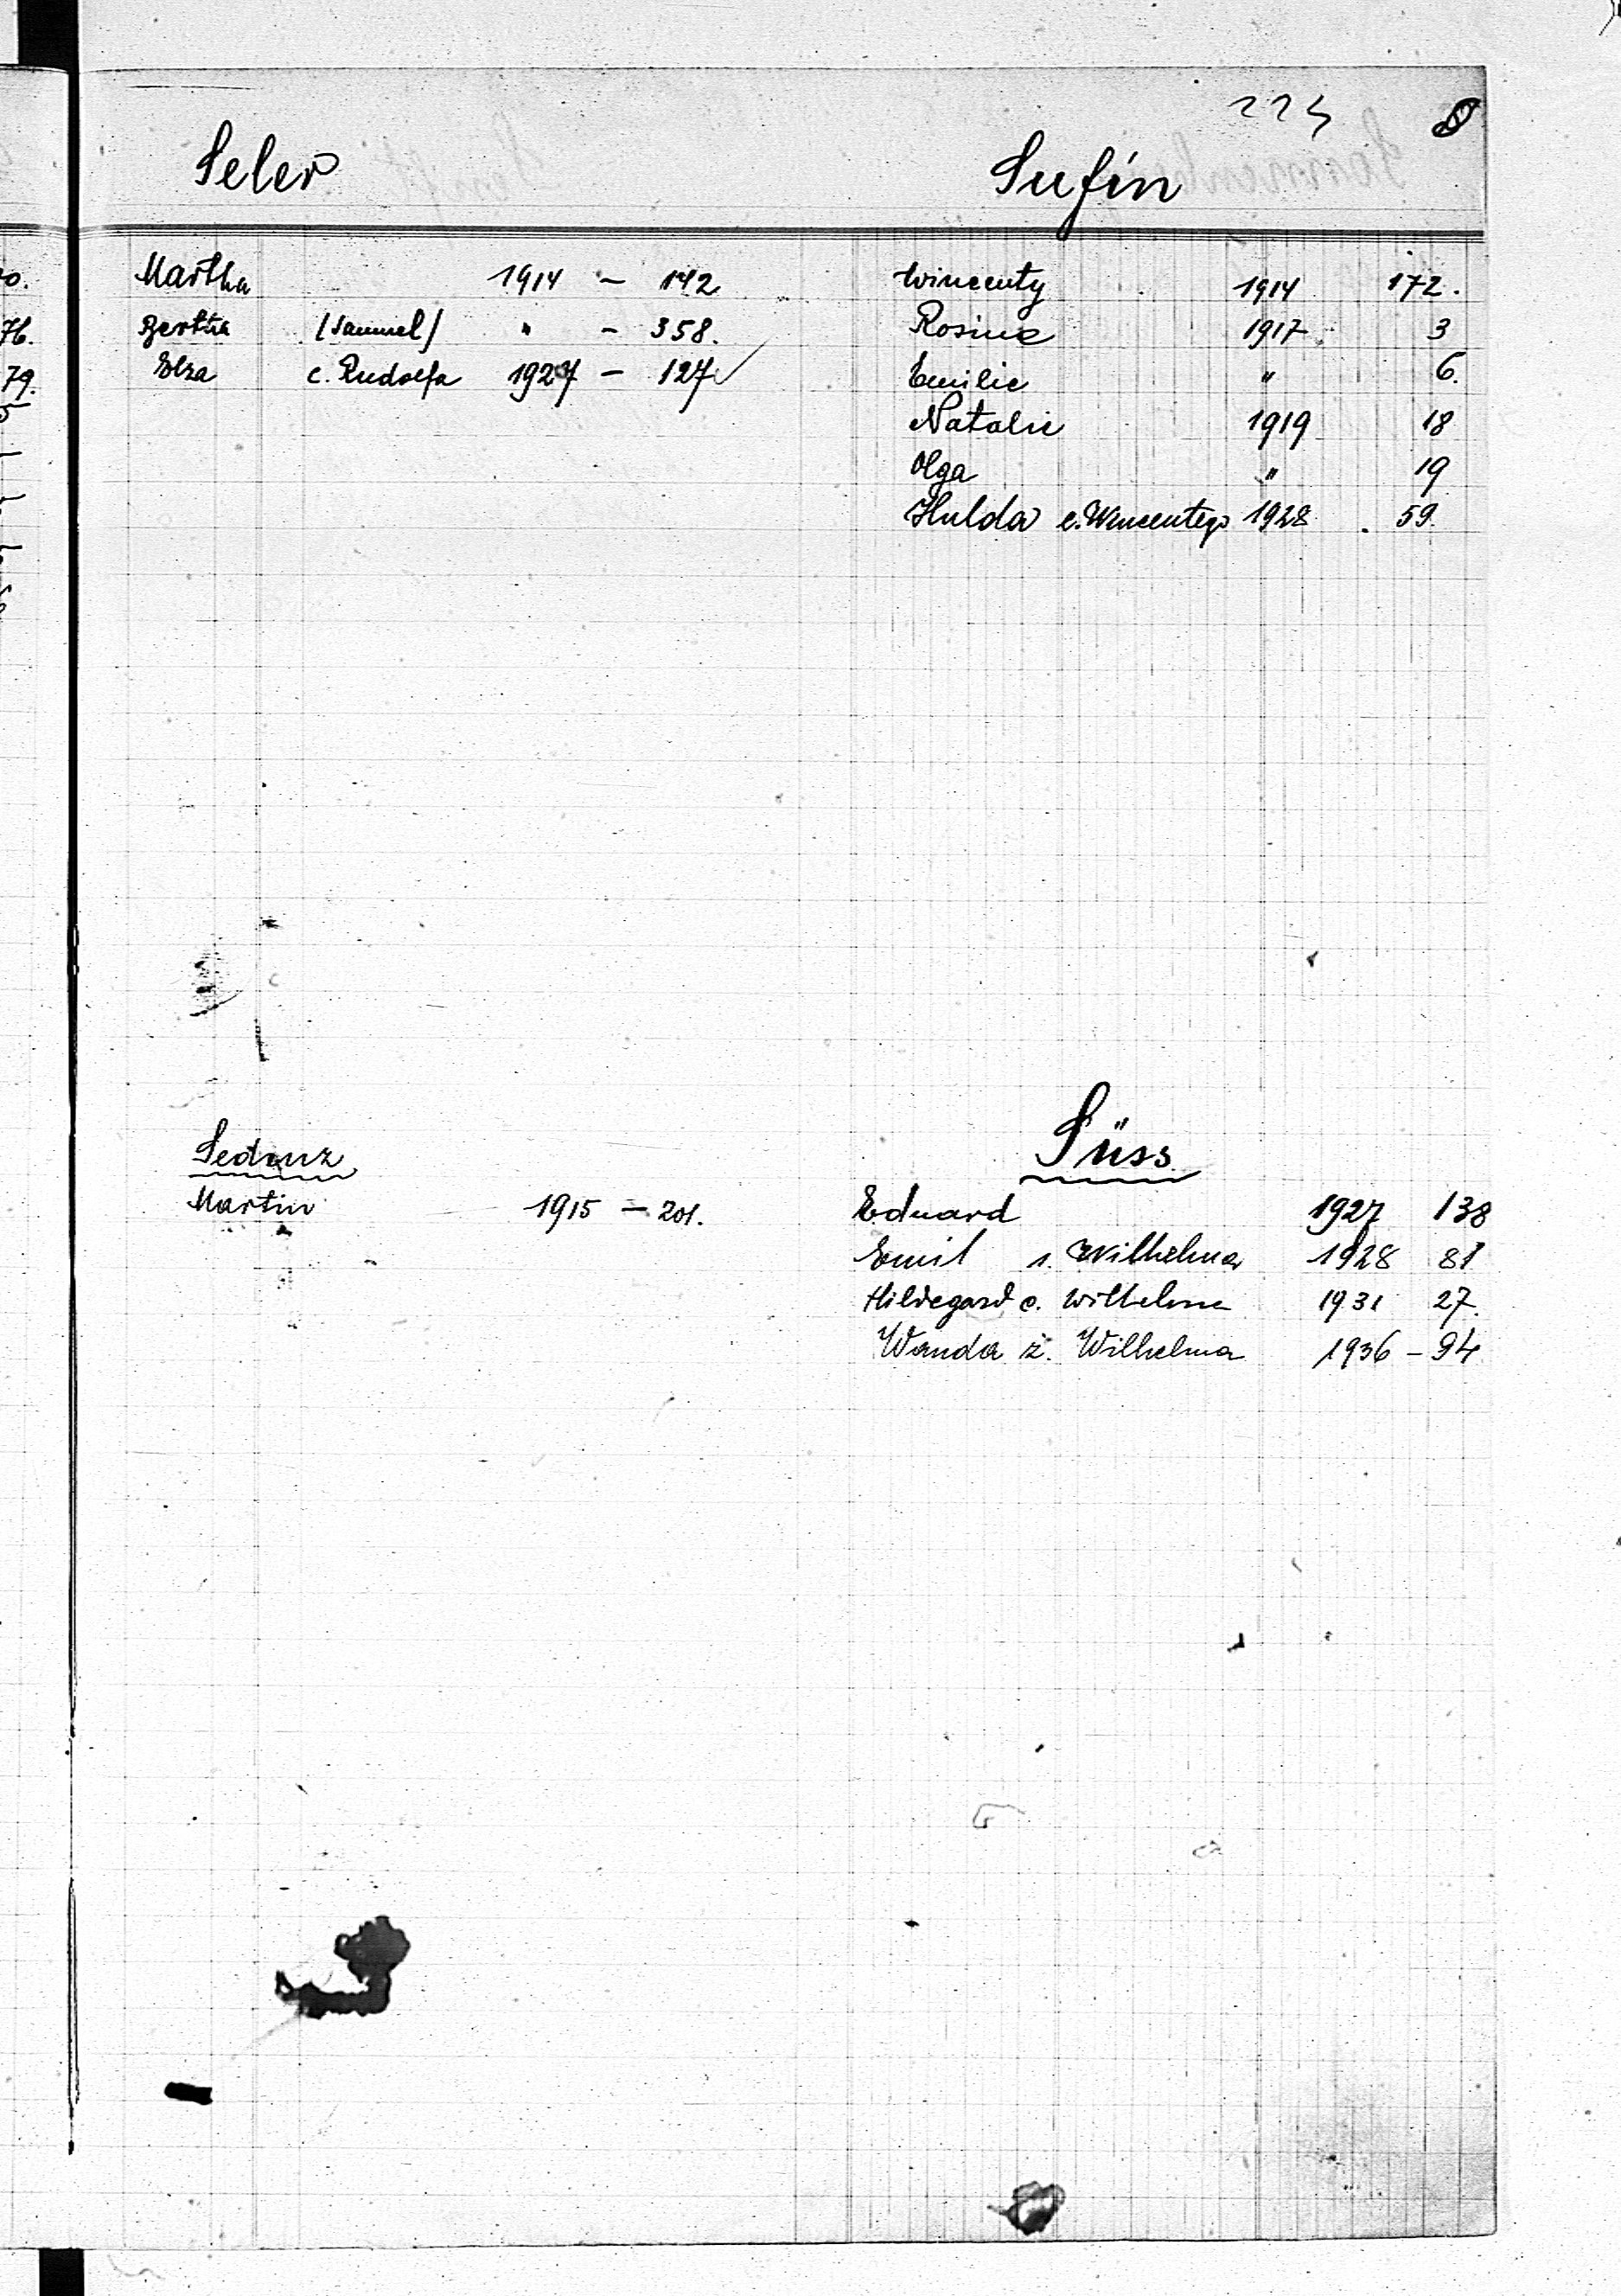 S
Seler
Martha 1914 - 142
Bertha (Samuel) " - 358.
Elza c. Rudolfa 1927 - 127
Sufin
Wincenty 1914 172.
Rosine 1917 3
Emilie " 6.
Natalie 1919 18
Olga " 19
Hulda c. Wincentego 1928 59.
Martin 1915 - 201.
Süss
Eduard 1927 138
Emil s. Wilhelma 1928 81
Hildegard c. Wilhelma 1931 27.
Wanda ż. Wilhelma 1936 - 94
76.
79.